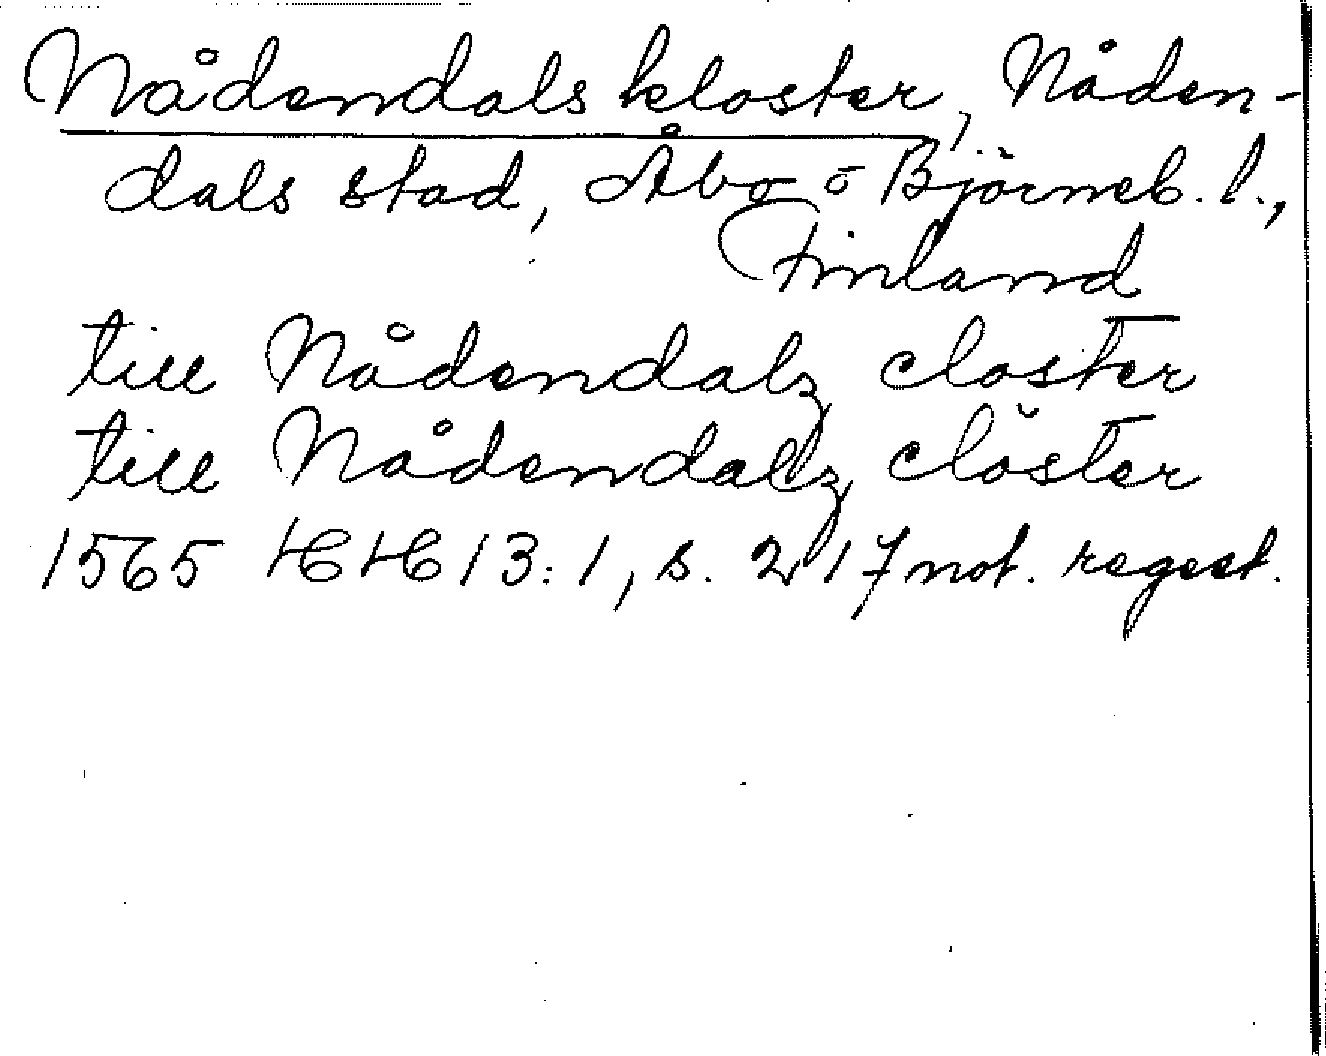 Nådendals kloster, Nåden-
dals stad, Åbo o Björneb. l.,
Finland
till Nådendalz closter
till Nådendalz clöster
1565 HH 13:1, s. 217 not. regest.